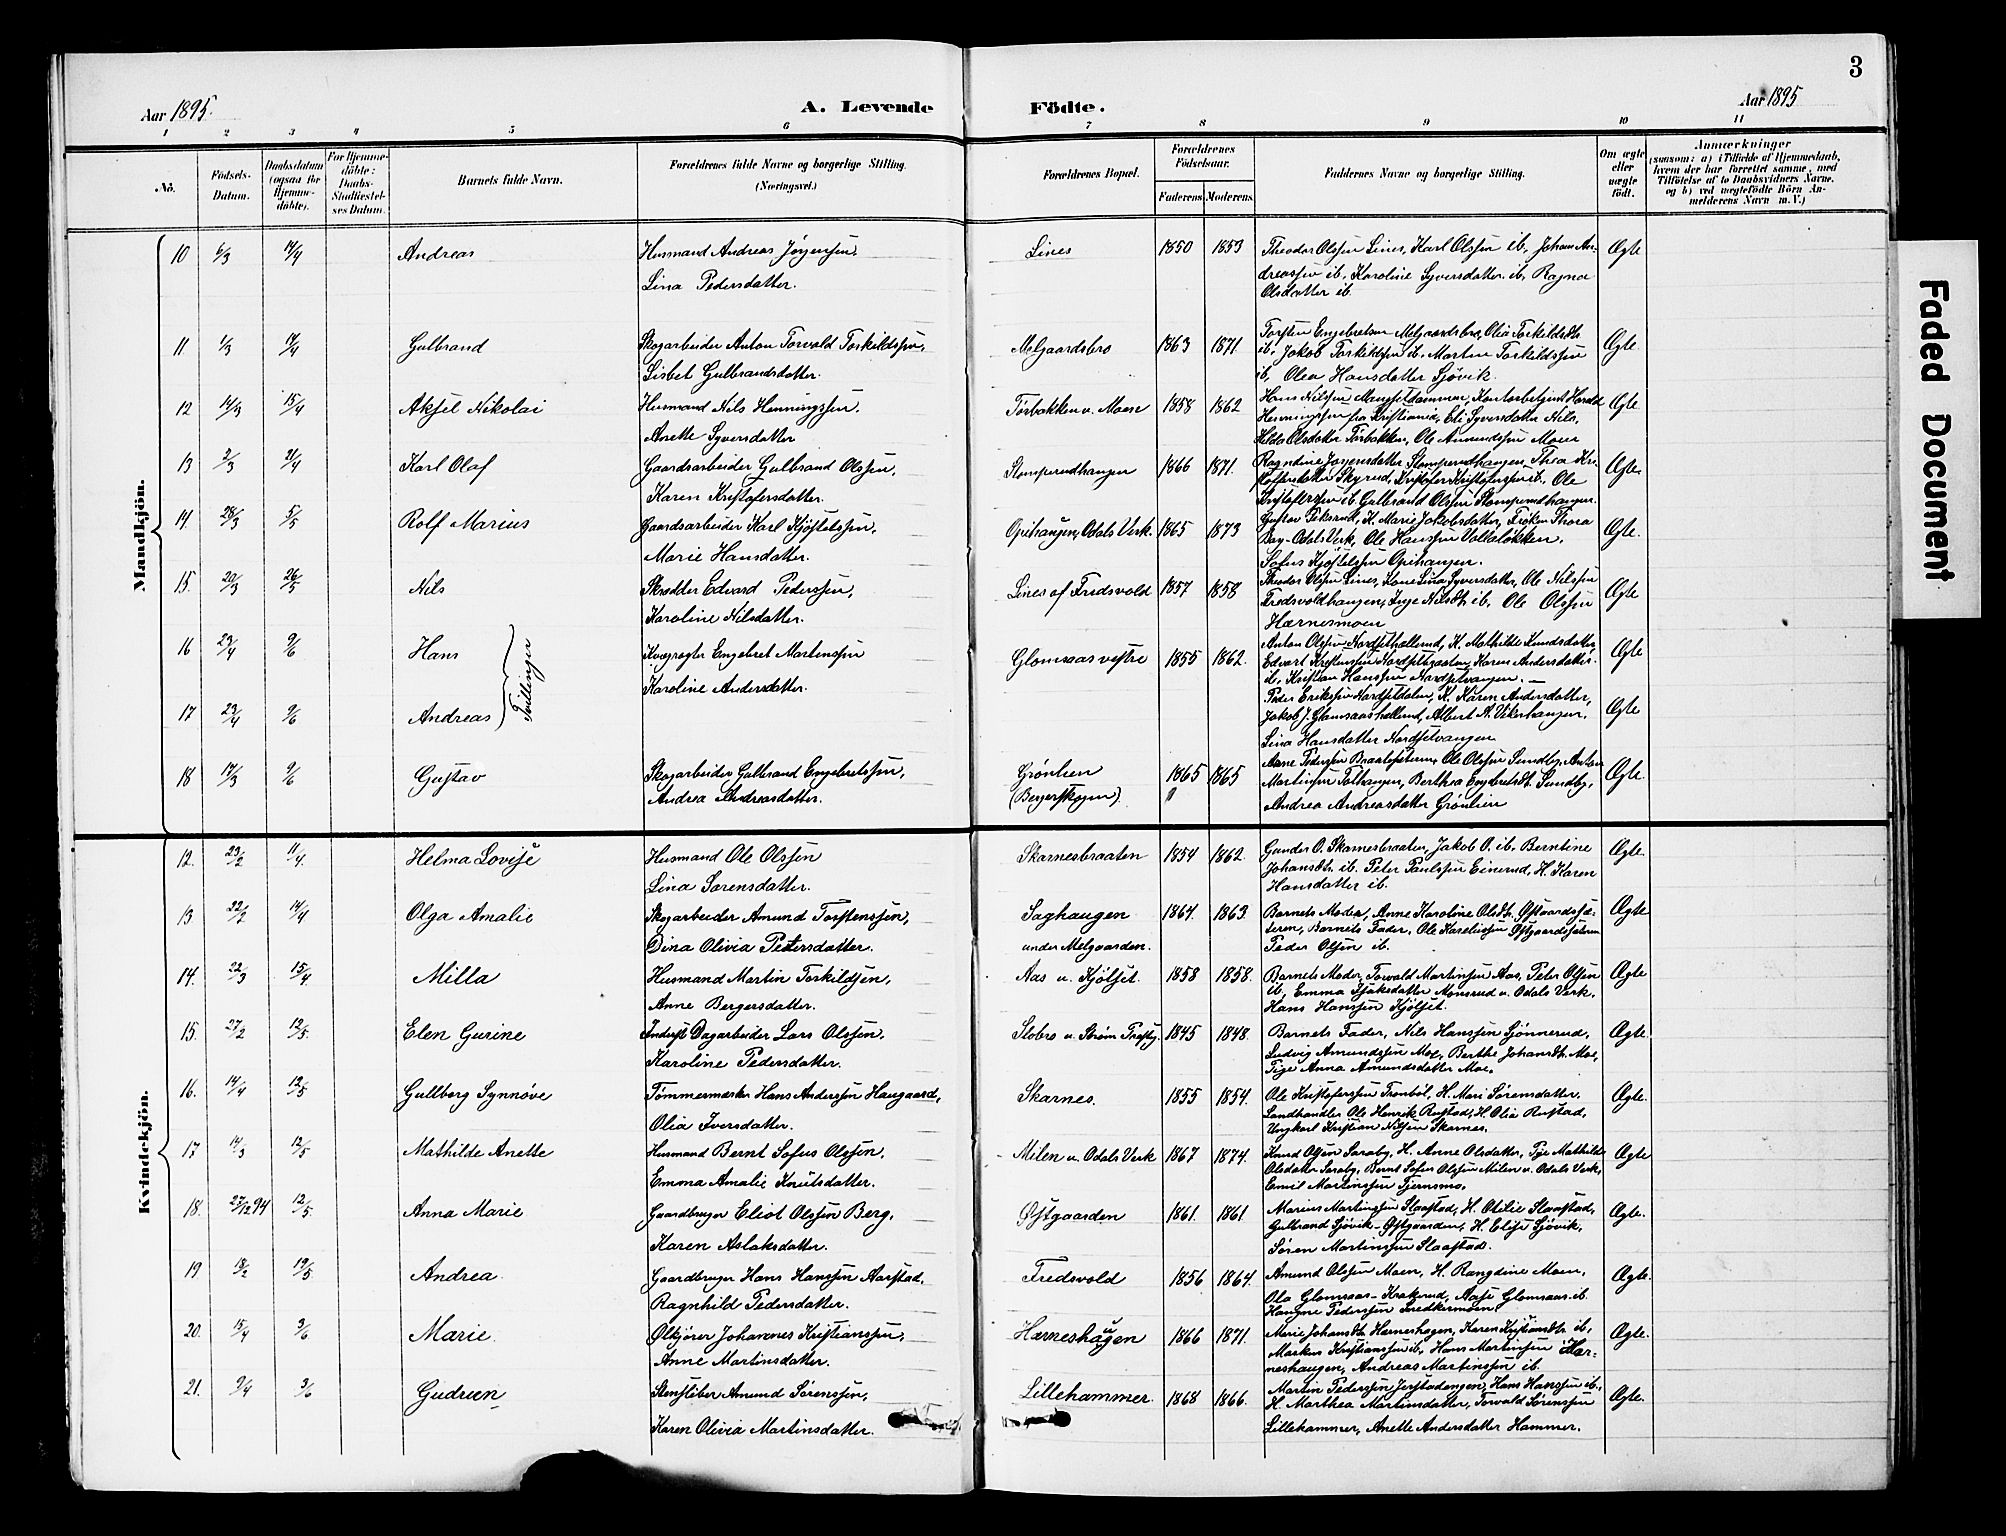 3
Aar 1895.
A. Levende
Födte.
Aar 1895
1 2 3 4 5 6 7 8 9 10 11
No.
Födsels-Datum.
Daabsdatum (ogsaa for Hjemmedöbte).
For Hjemmedöbte: Daabs-Stadfæstelses Datum.
Barnets fulde Navn.
Forældrenes fulde Navne og borgerlige Stilling. (Næringsvei.)
Forældrenes Bopæl.
Forældrenes Födselsaar.
Faderens Moderens
Faddernes Navne og borgerlige Stilling.
Om ægte eller uægte födt.
Anmærkninger
(saasom: a) i Tilfælde af Hjemmedaab, hvem der har forrettet samme, med Tilföielse af to Daabsvidners Navne, og b) ved uægtefödte Börn Anmelderens Navn m. V.)
Mandkjön.
10 6/3 14/4 Andreas
Husmand Andreas Jørgensen,
Lina Pedersdatter.
Lines 1850 1853
Theodor Olssen Lines, Karl Olssen ib, Johan An-
dreassen ib, Karoline Syversdatter ib, Ragna
Olsdatter ib.
Ægte
11 1/3 14/4 Gulbrand
Skogarbeider Anton Torvald Torkildssen,
Lisbet Gulbrandsdatter.
Melgaardsbro 1863 1871
Torsten Engebretsen Melgaardsbro, Olia Torkildsdt.
ib, Jakob Torkildssen ib. Martin Torkildssen
ib, Olea Hansdatter Sjøvik.
Ægte.
12 14/3 15/4 Aksel Nikolai
Husmand Nils Henningssen,
Anette Syversdatter
Tørbakken u. Moen 1858 1862
Hans Nilssen, Kontorbetjent Harald
Henningssen fra Kristiania, Eli Syversdatter Nils,
Hilda Olsdatter Tørbakken, Ole Amundssen Moen
Ægte.
13 2/3 21/4 Karl Olaf
Gaardsarbeider Gulbrand Olssen,
Karen Kristofersdatter.
Slomperudhaugen 1866 1871.
Ragndine Jørgensdatter Slomperudhaugen, Thea Kri-
stofersdatter Skyrud, Kristofer Kristoferssen ib, Ole
Kristoferssen ib. Gulbrand Olssen Slomperudhaugen.
Ægte.
14. 28/3 5/5 Rolf Marius
Gaardsarbeider Karl Kjøstelssen,
Marie Hansdatter.
Opihaugen, Odals Verk. 1865 1873
Gustav Piksrud, H. Marie Jakobsdatter, Frøken Thora
Bay-Odals Verk, Ole Hanssen Volleløkken,
Sofus Kjøstelssen Opihaugen.
Ægte.
15. 20/3 26/5 Nils
Skrædder Edvard Pederssen,
Karoline Nilsdatter.
Lines af Fredsvold 1857 1858
Theodor Olssen Lines, Kone Lina Syversdatter, Ole Nilssen
Fredsvoldhaugen, Inge Nilsdt. ib. Ole Olssen
Hærnesmoen
Ægte
16 23/4 9/6 Hans
Kvægrøgter Engebret Martinssen
Karoline Andersdatter.
Glomsaas vestre 1855 1862.
Anton Olssen Nordsethallund, H. Mathilde Knudsdatter,
Edvart Kristenssen Nordsetgaarden, Karen Andersdatter
ib, Kristian Hanssen Nordsetvangen.
Ægte
Tvillinger
17 23/4 9/6 Andreas
Peder Erikssen Nordsetdalen, H. Karen Andersdatter,
Jakob J. Glomsaashallund, Albert A. Vikerhaugen,
Lina Hansdatter Nordsetvangen
Ægte
18 17/3 9/6 Gustav
Skogarbeider Gulbrand Engebretssen,
Andrea Andreasdatter.
Grønlien
(Bergerskogen) 1865 1865
Arne Pedersen Braatesteren, Ole Olssen Sundby, Anton
Martinssen Tothaugen, Berthea Engebretsdt. Sundby,
Andrea Andreasdatter Grønlien
Ægte.
Kvindekjön.
12. 23/2 11/4. Helma Lovise
Husmand Ole Olssen
Lina Sørensdatter.
Skarnesbraaten 1854 1862.
Gunder O. Skarnesbraaten, Jakob O. ib. Berntine
Johansdt. ib. Peter Paulssen Einerud, H. Karen
Hansdatter ib.
Ægte.
13 22/2 14/4 Olga Amalie
Skogarbeider Amund Torstenssen,
Dina Olivia Pedersdatter.
Saghaugen
under Melgaarden. 1864. 1863.
Barnets Moder, Anne Karoline Olsdt. Østgaardssæ-
teren, Barnets Fader, Ole Kareliussen Østgaardsæteren
Peder Olsen ib.
Ægte
14. 22/3 15/4 Milla
Husmand Martin Torkildsen,
Anne Bergersdatter.
Aas u. Kjølset. 1858 1858.
Barnets Moder, Torvald Martinssen Aas, Peter Olsen
ib, Emma Isaksdatter Monsrud u. Odals Verk.
Hans Hanssen Kjølset.
Ægte
15. 27/2 12/5. Elen Gurine
Inderst Dagarbeider Lars Olssen,
Karoline Pedersdatter.
Slobro u. Strøm Præstg. 1845 1848.
Barnets Fader, Nils Hanssen Sjønnerud,
Ludvig Amundssen Moe, Berthe Johansdt. Moe,
Pige Anna Amundsdatter Moe.
Ægte.
16. 14/4 12/5 Gullborg Synnøve
Tømmermærker Hans Anderssen Haugaard,
Olia Iversdatter.
Skarnes. 1855 1854.
Ole Kristoferssen Tronbøl, H. Mari Sørensdatter,
Landhandler Ole Henrik Rustad, H. Olia Rustad,
Ungkarl Kristian Nilssen Skarnes.
Ægte.
17 14/3 12/5 Mathilde Anette
Husmand Bernt Sofus Olssen,
Emma Amalie Knutsdatter.
Milen u. Odals Verk 1867 1874.
Knud Olsen Saraby, H. Anne Olsdatter, Pige Mathilde
Olsdatter Saraby, Bernt Sofus Olssen Milen u. Odals Verk,
Emil Martinssen Tjernsmo.
Ægte
18. 27/12 94 12/5. Anna Marie
Gaardbruger Eliot Olssen Berg,
Karen Aslaksdatter.
Østgaarden 1861. 1861.
Marius Martinssen Slaastad, H. Otilie Slaastad,
Gulbrand Sjøvik-Østgaarden, H. Elise Sjøvik,
Søren Martinssen Slaastad.
Ægte.
19 18/2 19/5 Andrea
Gaardbruger Hans Hanssen Aarstad,
Ragnhild Pedersdatter.
Fredsvold 1856 1864.
Amund Olssen Moen, H. Rangdine Moen,
Ola Glomsaas-Krakerud, Aase Glomsaas ib.
Hanne Pederssen Snedkermoen
Ægte.
20. 15/4 3/6 Marie
Ølkjører Johannes Kristianssen,
Anne Martinsdatter.
Hærneshaugen 1866 1871.
Marie Johansdt. Hærneshagen, Karen Kristiansdt. ib,
Markus Kristianssen ib, Hans Martinssen Hær-
neshaugen, Andreas Martinssen ib.
Ægte.
21. 9/4 3/6 Gudrun
Stensliber Amund Sørenssen,
Karen Olivia Martinsdatter.
Lillehammer. 1868 1866.
Martin Pederssen Jerstadengen, Hans Hanssen ib,
H. Marthea Martinsdatter, Torvald Sørenssen
Lillehammer, Anette Andersdatter Hammer.
Ægte.
Faded Document